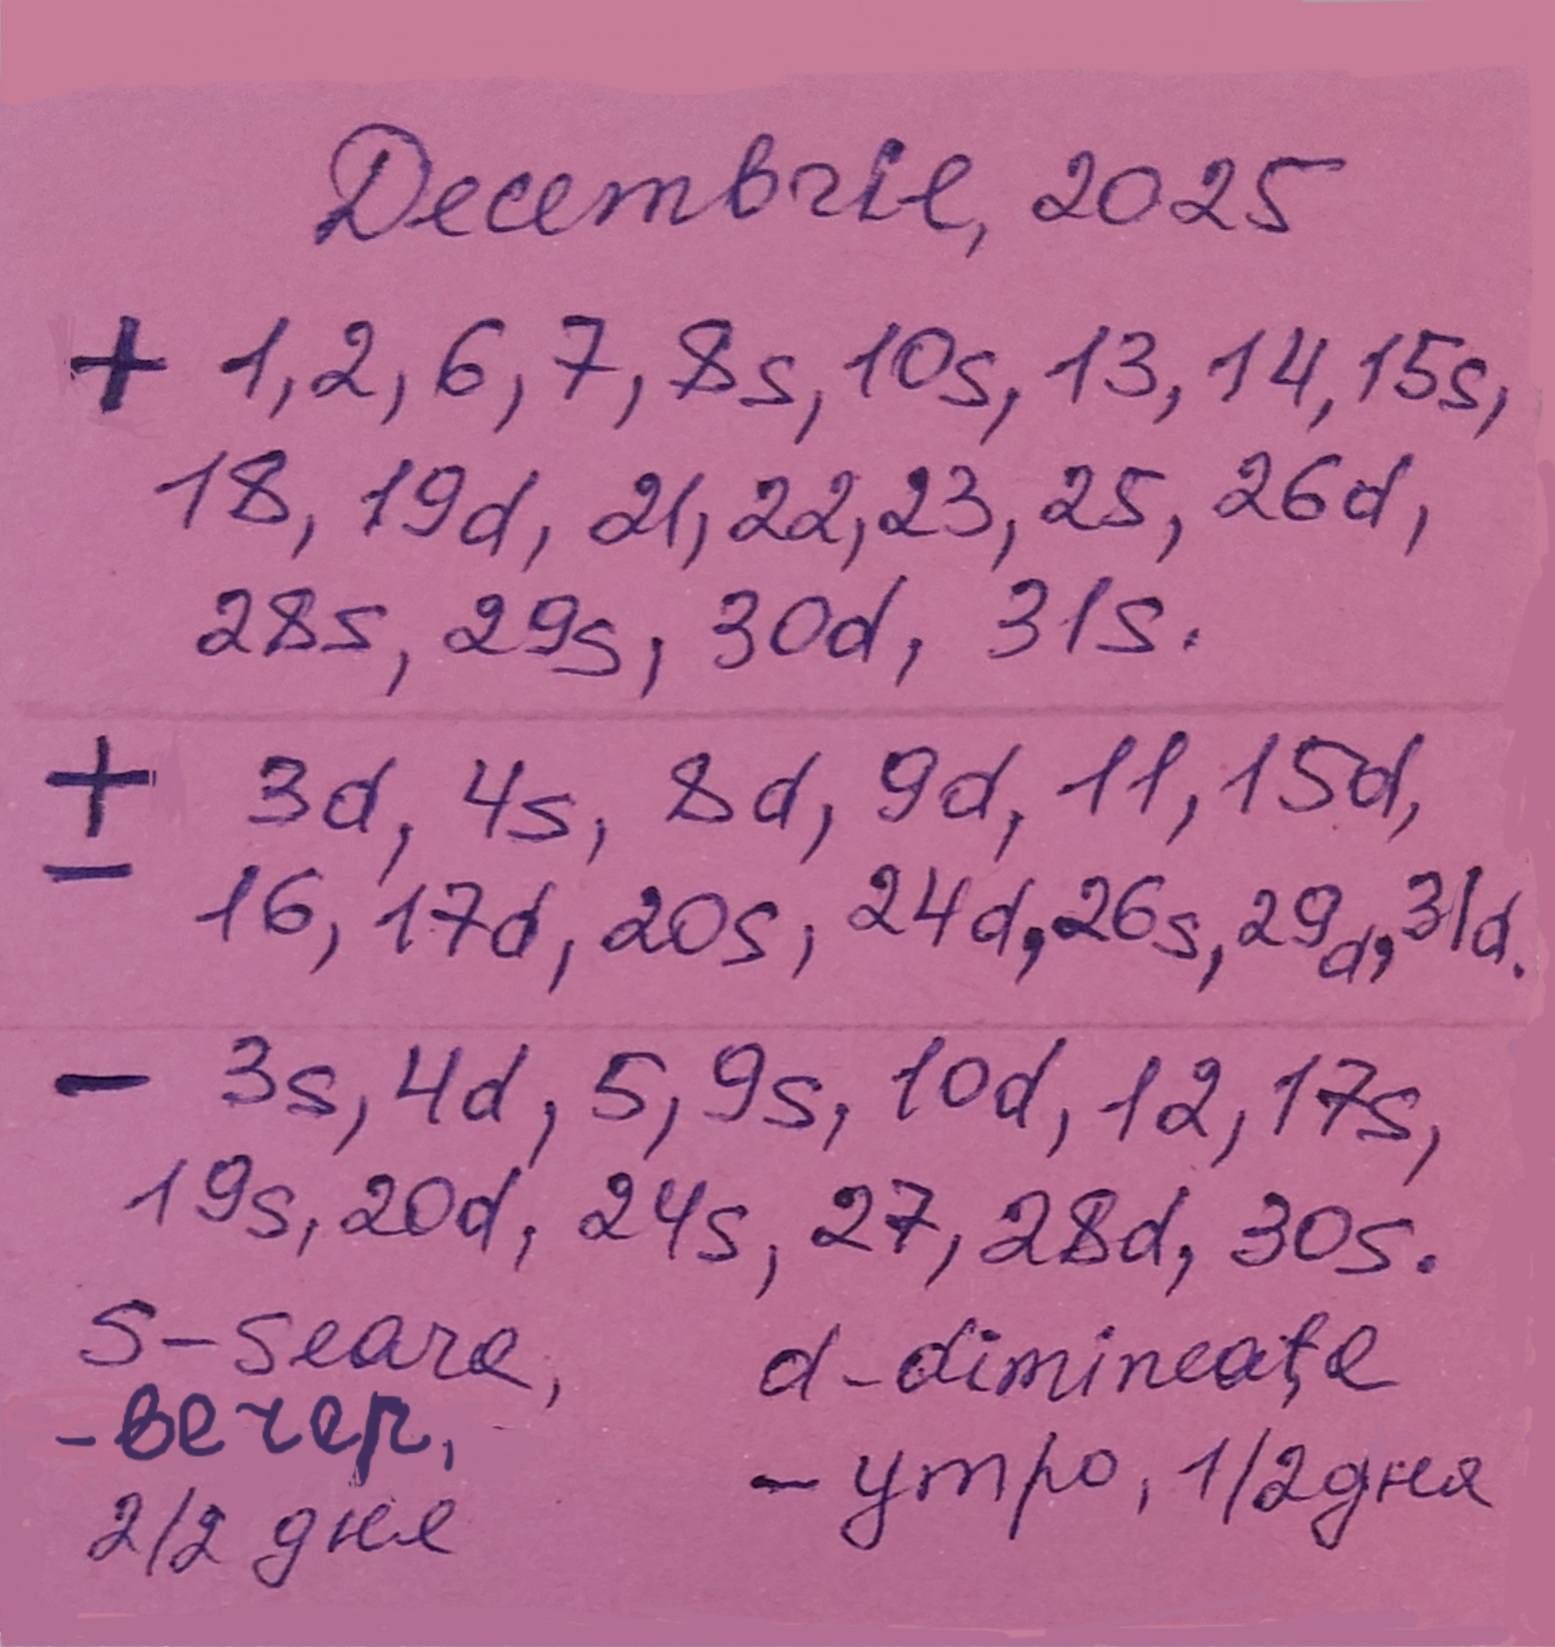 Decembrie, 2025
+ 1, 2, 6, 7, 8s, 10s, 13, 14, 15s,
18, 19d, 21, 22, 23, 25, 26d,
28s, 29s, 30d, 31s.
± 3d, 4s, 8d, 9d, 11, 15d,
16, 17d, 20s, 24d, 26s, 29d, 31d.
- 3s, 4d, 5, 9s, 10d, 12, 17s,
19s, 20d, 24s, 27, 28d, 30s.
s-seara, d-dimineața
-вечер, - утро, 1/2 дня
2/2 дня